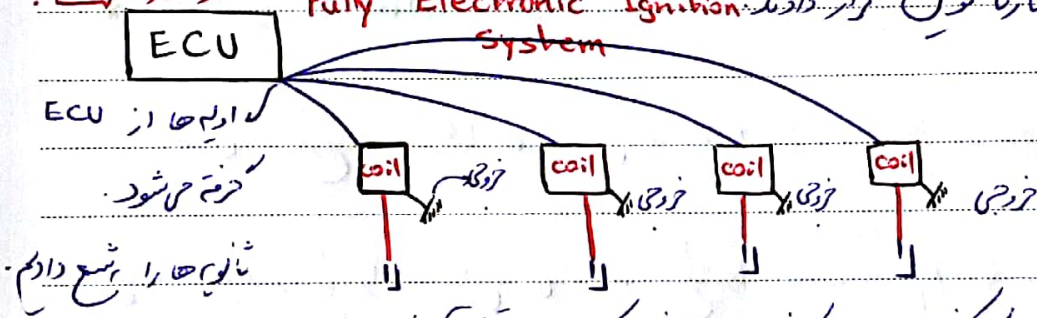 Fully Electronic Ignition قرار دادند.
System
ECU
اولیه ها از ECU
گرفته می شود.
coil خروجی coil خروجی coil خروجی coil خروجی
ثانویه ها را به شمع دادیم.